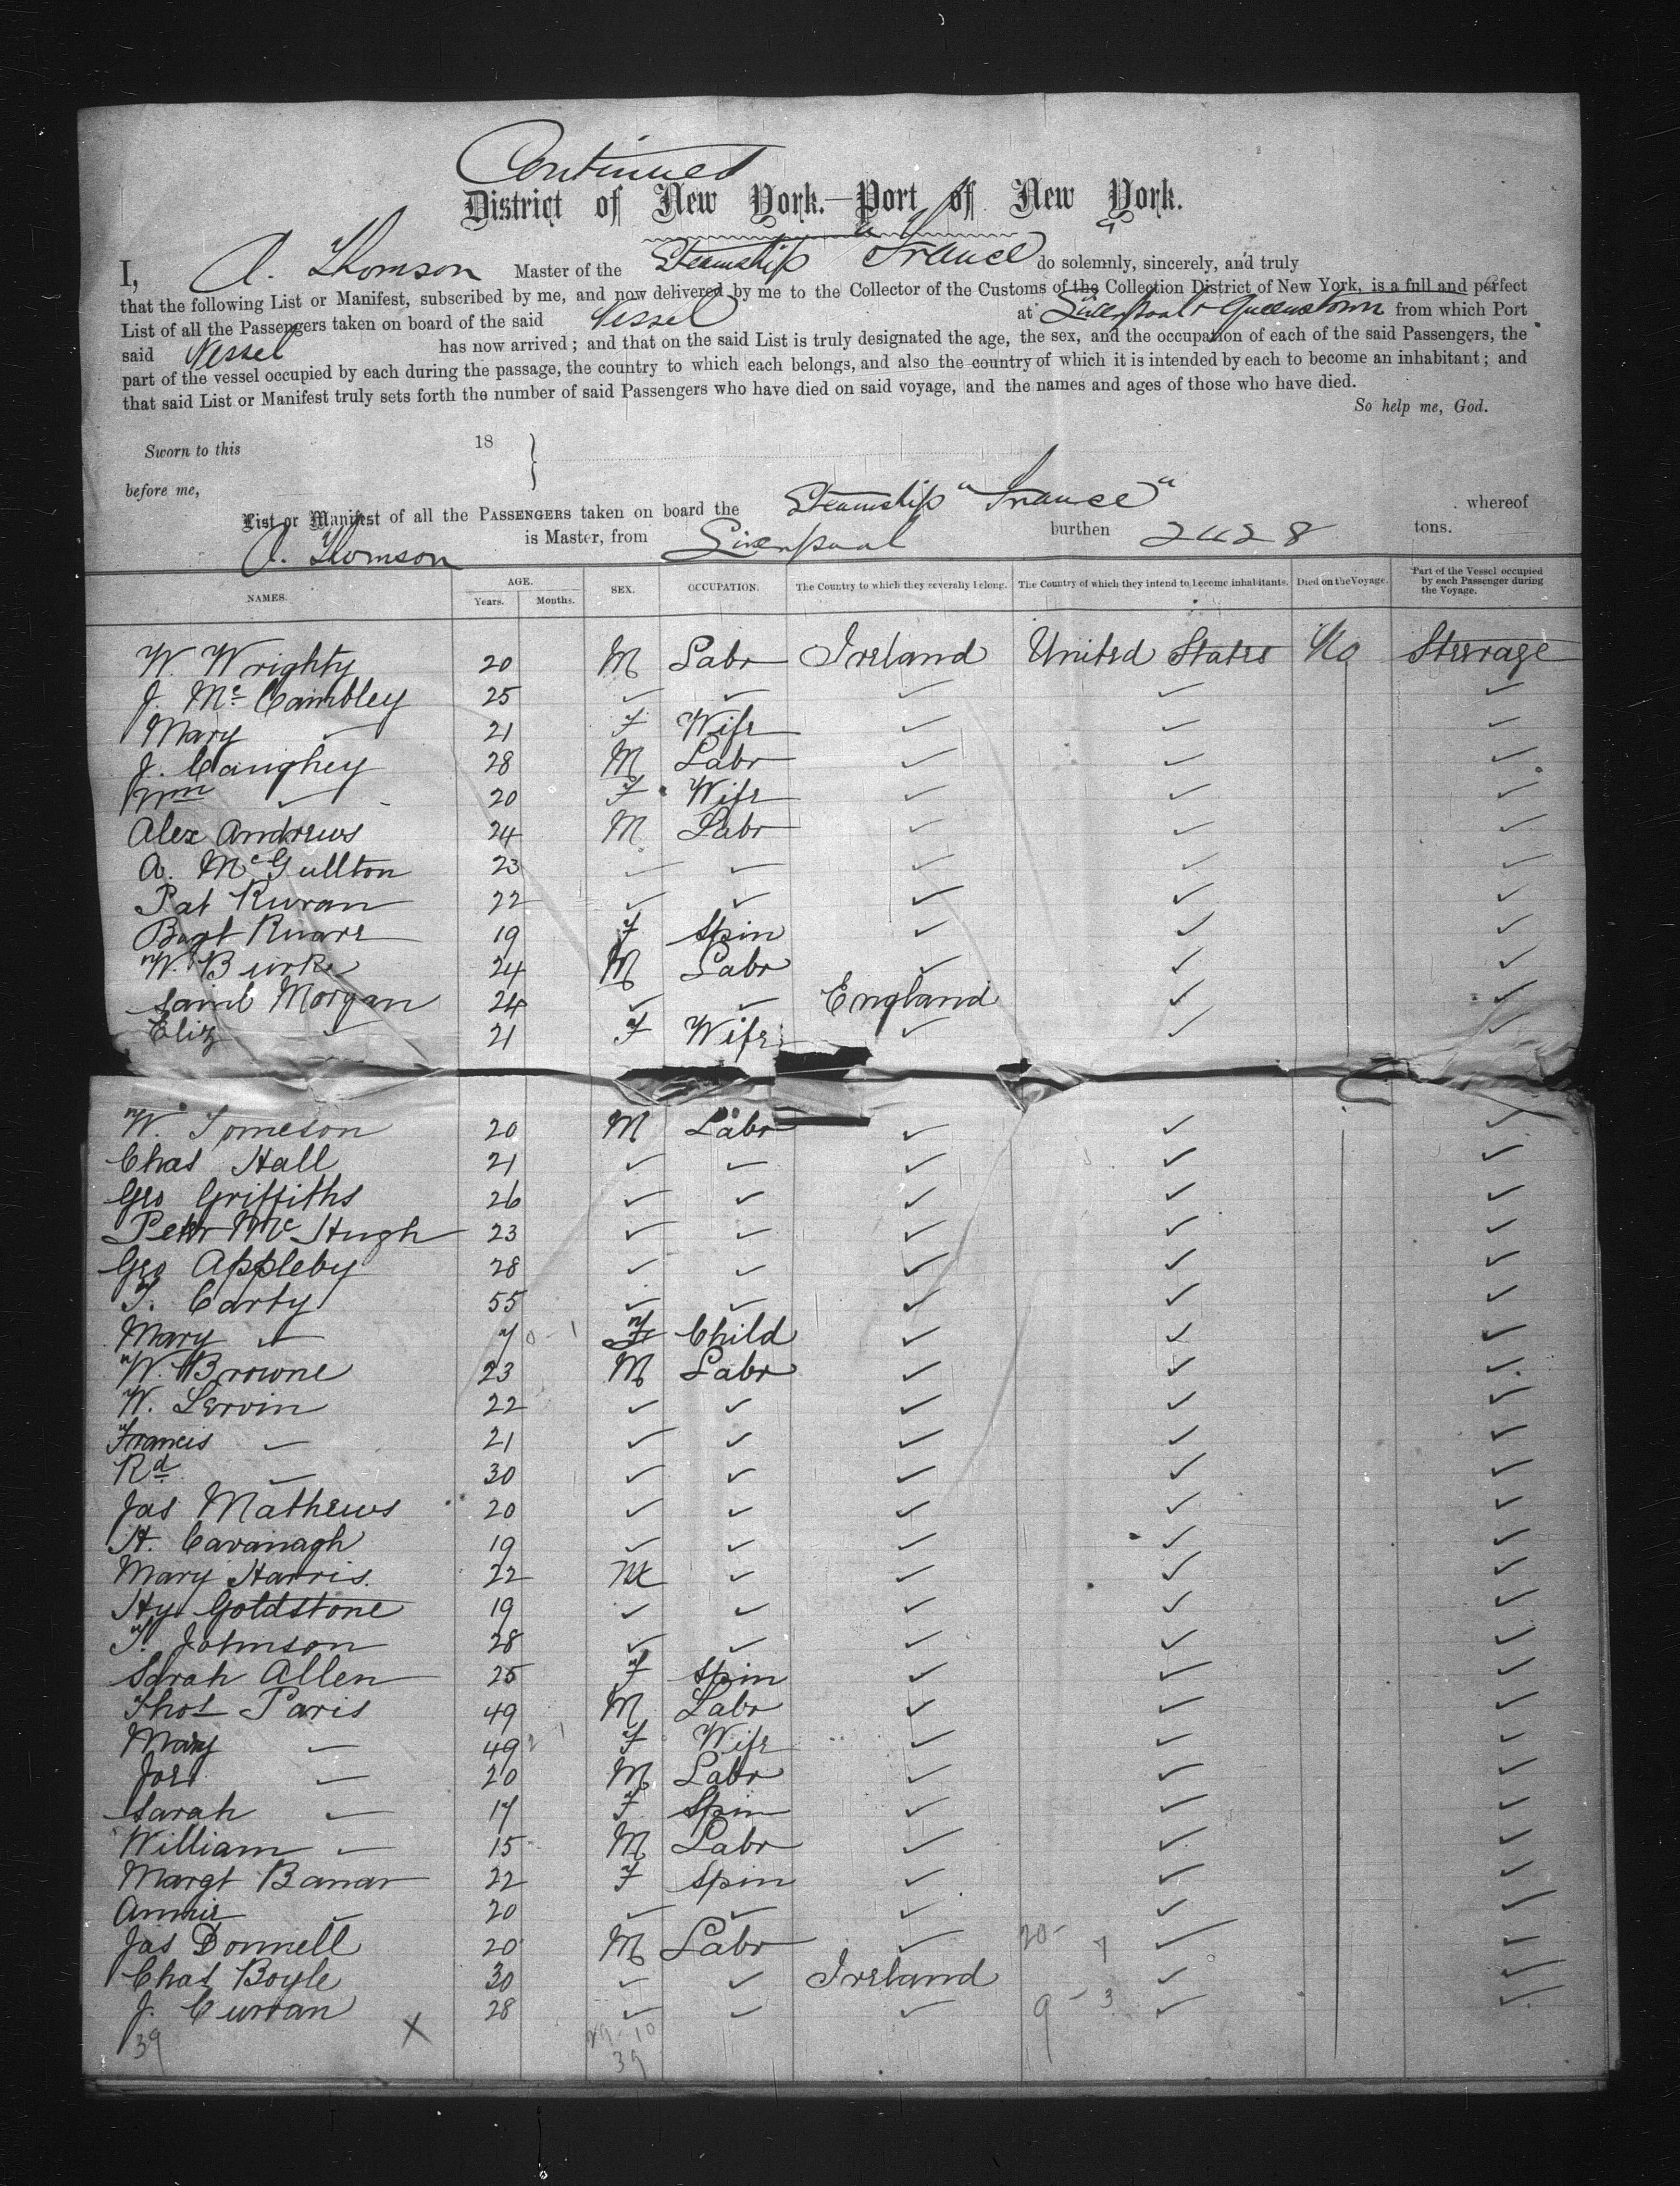 Continued
District of New York.—Port of New York.
I, A. Thomson Master of the Steamship "France" do solemnly, sincerely, and truly
that the following List or Manifest, subscribed by me, and now delivered by me to the Collector of the Customs of the Collection District of New York, is a full and perfect
List of all the Passengers taken on board of the said Vessel at Liverpool & Queenstown from which Port
said Vessel has now arrived; and that on the said List is truly designated the age, the sex, and the occupation of each of the said Passengers, the
part of the vessel occupied by each during the passage, the country to which each belongs, and also the country of which it is intended by each to become an inhabitant; and
that said List or Manifest truly sets forth the number of said Passengers who have died on said voyage, and the names and ages of those who have died.
So help me, God.
Sworn to this 18
before me,
List or Manifest of all the PASSENGERS taken on board the Steamship "France" whereof
A. Thomson is Master, from Liverpool burthen 2428 tons.
NAMES. AGE. Years. Months. SEX. OCCUPATION. The Country to which they severally belong. The Country of which they intend to become inhabitants. Died on the Voyage. Part of the Vessel occupied by each Passenger during the Voyage.
W. Wrighty 20 M Labr Ireland United States No Steerage
J. Mc Cambley 25 ✓ ✓ ✓ ✓ ✓
Mary ✓ 21 F Wife ✓ ✓ ✓
J. Caughey 28 M Labr ✓ ✓ ✓
✓ 20 F Wife ✓ ✓ ✓
Alex Andrews 24 M Labr ✓ ✓ ✓
A. McGullton 23 ✓ ✓ ✓ ✓ ✓
Pat Kuran 22 ✓ ✓ ✓ ✓ ✓
19 F Spin ✓ ✓ ✓
W. Burke 24 M Labr ✓ ✓ ✓
Saml Morgan 24 ✓ ✓ England ✓ ✓
Eliz ✓ 21 F Wife ✓ ✓ ✓
W. Tomeson 20 M Labr ✓ ✓ ✓
Chas Hall 21 ✓ ✓ ✓ ✓ ✓
Geo Griffiths 26 ✓ ✓ ✓ ✓ ✓
Peter Mc Hugh 23 ✓ ✓ ✓ ✓ ✓
Geo Appleby 28 ✓ ✓ ✓ ✓ ✓
T. Carty 55 ✓ ✓ ✓ ✓ ✓
Mary ✓ 7 0-1 F Child ✓ ✓ ✓
W. Browne 23 M Labr ✓ ✓ ✓
W. Lervin 22 ✓ ✓ ✓ ✓ ✓
Francis ✓ 21 ✓ ✓ ✓ ✓ ✓
Rd ✓ 30 ✓ ✓ ✓ ✓ ✓
Jas Mathews 20 ✓ ✓ ✓ ✓ ✓
H. Cavanagh 19 ✓ ✓ ✓ ✓ ✓
Mary Harris 22 M ✓ ✓ ✓ ✓
Hy Goldstone 19 ✓ ✓ ✓ ✓ ✓
T. Johnson 28 ✓ ✓ ✓ ✓ ✓
Sarah Allen 25 F Spin ✓ ✓ ✓
Thos Paris 49 M Labr ✓ ✓ ✓
Mary ✓ 49 F Wife ✓ ✓ ✓
Jos ✓ 20 M Labr ✓ ✓ ✓
Sarah ✓ 17 F Spin ✓ ✓ ✓
William ✓ 15 M Labr ✓ ✓ ✓
Margt Banar 22 F Spin ✓ ✓ ✓
Annie ✓ 20 ✓ ✓ ✓ ✓ ✓
Jas Donnell 20 M Labr ✓ 20- 7 ✓ ✓
Chas Boyle 30 ✓ ✓ Ireland ✓ ✓
J. Curran 28 ✓ ✓ ✓ 9 - 3 ✓ ✓
39 X 29-10
39